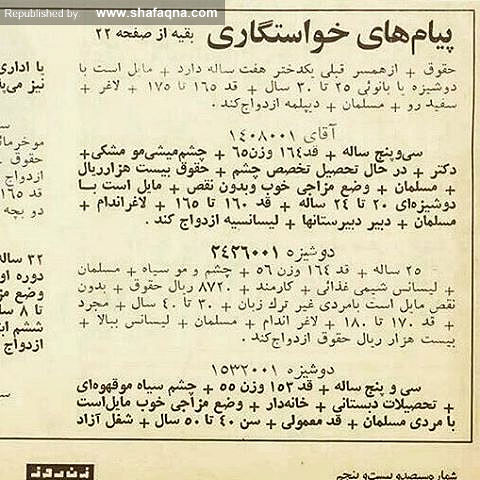 Republished by : www.shafaqna.com
پیام‌های خواستگاری بقیه از صفحه ۲۲
حقوق + ازهمسر قبلی یکدختر هفت ساله دارد + مایل است با
دوشیزه یا بانوئی ۲۵ تا ۳۰ سال + قد ۱۶۵ تا ۱۷۵ + لاغر +
سفید رو + مسلمان + دیپلمه ازدواج کند.
آقای ۱۴۰۸۰۰۱
سی‌و‌پنج ساله + قد۱۶۴ وزن۶۵ + چشم‌میشی‌مو مشکی+
دکتر + در حال تحصیل تخصص چشم + حقوق بیست هزارریال
+ مسلمان + وضع مزاجی خوب وبدون نقص + مایل است بـا
دوشیزه‌ای ۲۰ تا ۲۴ ساله + قد ۱۶۰ تا ۱۶۵ + لاغراندام +
مسلمان + دبیر دبیرستانها + لیسانسیه ازدواج کند .
دوشیزه ۲۴۲۶۰۰۱
۲۵ ساله + قد ۱۶۴ وزن ۵۶ + چشم و مو سیاه + مسلمان
+ لیسانس شیمی غذائی + کارمند + ۸۷۲۰ ریال حقوق + بدون
نقص مایل است بامردی غیر ترك زبان + ۳۰ تا ۴۰ سال + مجرد
+ قد ۱۷۰ تا ۱۸۰ + لاغر اندام + مسلمان + لیسانس ببالا +
بیست هزار ریال حقوق ازدواج‌کند .
دوشیزه ۱۵۳۲۰۰۱
سی و پنج ساله + قد ۱۵۳ وزن ۵۵ + چشم سیاه موقهوه‌ای
+ تحصیلات دبستانی + خانه‌دار + وضع مزاجی خوب مایل‌است
با مردی مسلمان + قد معمولی + سن ۴۰ تا ۵۰ سال + شغل آزاد
یا اداری
نیز می‌پذ
موخرمائ
حقوق
ازدواج
قد ۱۶۵
دو بچه
۳۲ ساله
دوره او
وضع مز
تا ۸ سا
ششم ابت
ازدواج
زن روز
شماره سیصدو بیست و پنجم